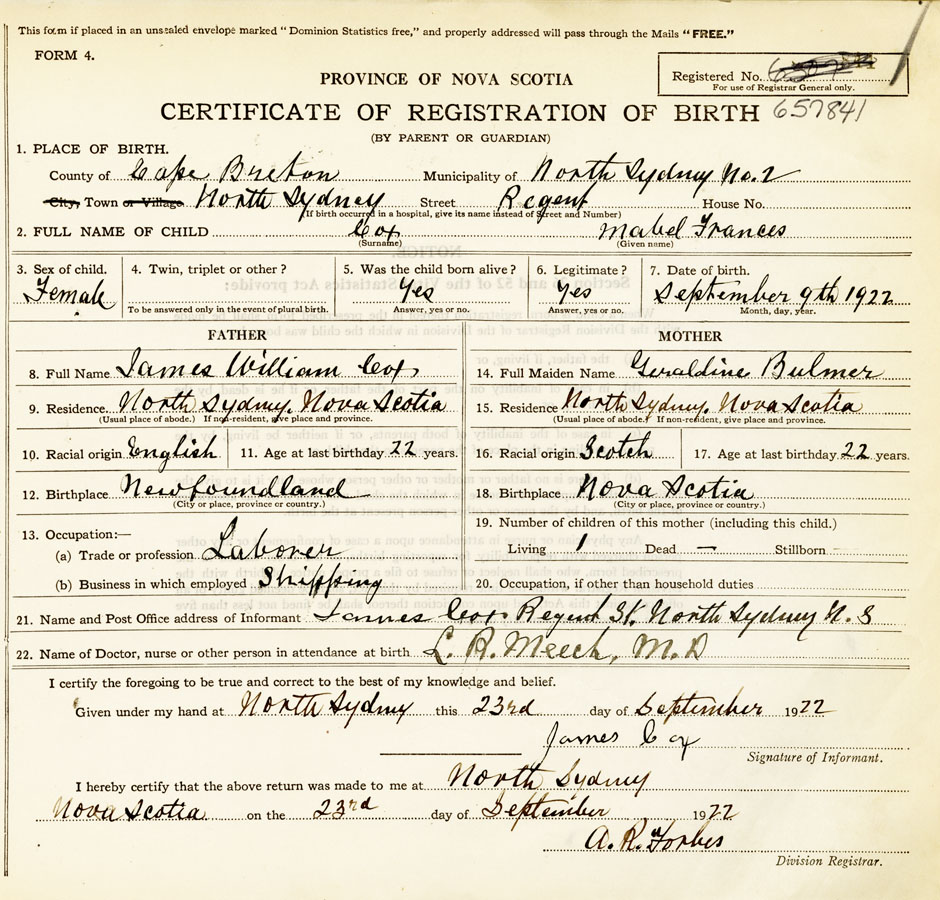 This form if placed in an unsealed envelope marked "Dominion Statistics free," and properly addressed will pass through the Mails "FREE."
FORM 4.
PROVINCE OF NOVA SCOTIA
Registered No.
For use of Registrar General only.
CERTIFICATE OF REGISTRATION OF BIRTH 657841
(BY PARENT OR GUARDIAN)
1. PLACE OF BIRTH.
County of Cape Breton Municipality of North Sydney No. 2
City, Town or Village North Sydney Street Regent House No.
(If birth occurred in a hospital, give its name instead of Street and Number)
2. FULL NAME OF CHILD Cox Mabel Frances
(Surname) (Given name)
3. Sex of child. 4. Twin, triplet or other? 5. Was the child born alive? 6. Legitimate? 7. Date of birth.
Female Yes Yes September 9th 1922
To be answered only in the event of plural birth. Answer, yes or no. Answer, yes or no. Month, day, year.
FATHER MOTHER
8. Full Name James William Cox 14. Full Maiden Name Geraldine Bulmer
9. Residence North Sydney. Nova Scotia 15. Residence North Sydney. Nova Scotia
(Usual place of abode.) If non-resident, give place and province. (Usual place of abode.) If non-resident, give place and province.
10. Racial origin English 11. Age at last birthday 22 years. 16. Racial origin Scotch 17. Age at last birthday 22 years.
12. Birthplace Newfoundland 18. Birthplace Nova Scotia
(City or place, province or country.) (City or place, province or country.)
13. Occupation:— 19. Number of children of this mother (including this child.)
(a) Trade or profession Laborer Living 1 Dead — Stillborn
(b) Business in which employed Shipping 20. Occupation, if other than household duties
21. Name and Post Office address of Informant James Cox Regent St. North Sydney N. S
22. Name of Doctor, nurse or other person in attendance at birth L. R. Meech, M. D
I certify the foregoing to be true and correct to the best of my knowledge and belief.
Given under my hand at North Sydney this 23rd day of September 1922
James Cox
Signature of Informant.
I hereby certify that the above return was made to me at North Sydney
Nova Scotia on the 23rd day of September 1922
A. R. Forbes
Division Registrar.